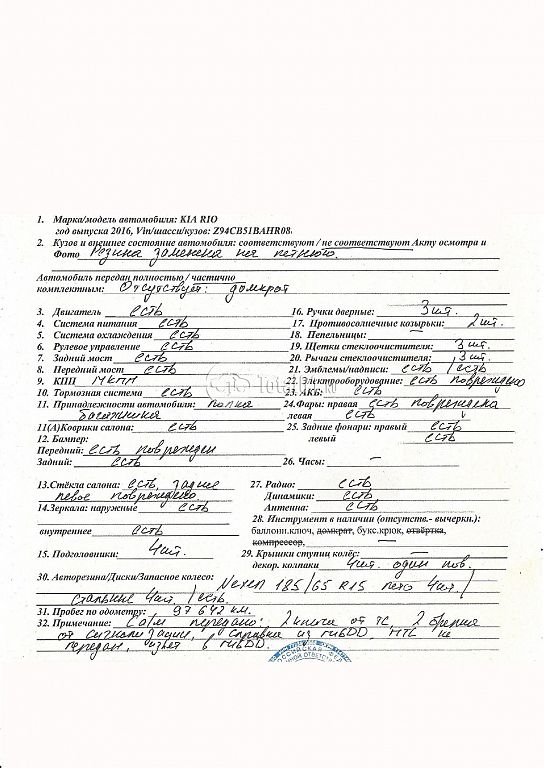 1. Марка/модель автомобиля: KIA RIO
год выпуска 2016, Vin/шасси/кузов: Z94CB51BAHR08
2. Кузов и внешнее состояние автомобиля: соответствуют / не соответствуют Акту осмотра и
Фото Резина заменена на летнюю.
Автомобиль передан полностью / частично
комплектным: Отсутствует: домкрат
3. Двигатель есть 16. Ручки дверные: 3 шт.
4. Система питания есть 17. Противосолнечные козырьки: 2 шт.
5. Система охлаждения есть 18. Пепельницы: —
6. Рулевое управление есть 19. Щетки стеклоочистителя: 3 шт.
7. Задний мост есть 20. Рычаги стеклоочистителя: 3 шт.
8. Передний мост есть 21. Эмблемы/надписи: есть / есть
9. КПП МКПП 22. Электрооборудование: есть повреждено
10. Тормозная система есть 23. АКБ: есть
11. Принадлежности автомобиля: полка 24.Фары: правая есть повреждена
багажника левая есть
11(А)Коврики салона: есть 25. Задние фонари: правый есть
12. Бампер: левый есть
Передний: есть поврежден
Задний: есть 26. Часы: —
13.Стёкла салона: есть, заднее 27. Радио: есть
левое повреждено. Динамики: есть
14.Зеркала: наружные есть Антенна: есть
28. Инструмент в наличии (отсутств.- вычеркн.):
внутреннее есть баллонн.ключ, домкрат, букс.крюк, отвёртка,
компрессор, —
15. Подголовники: 4 шт. 29. Крышки ступиц колёс: —
декор. колпаки 4 шт. один пов.
30. Авторезина/Диски/Запасное колесо: Nexen 185/65 R15 лето 4 шт. /
стальные 4 шт. / есть.
31. Пробег по одометру: 97 642 км.
32. Примечание: С а/м передано: 2 ключа от ТС, 2 брелка
от сигнализации, справка из ГИБДД, ПТС не
передан, изъят в ГИБДД.